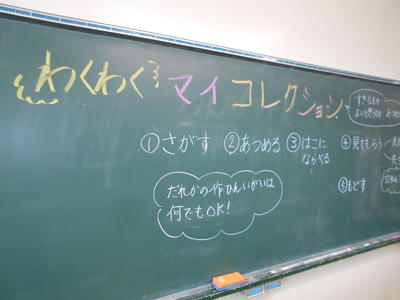 わくわく マイ コレクション
すきなもの
よいと思うもの あつ
①さがす ②あつめる ③はこにならべる ④見てもらう
⑤もどす
だれかの作ひんいがいは
何でもOK!